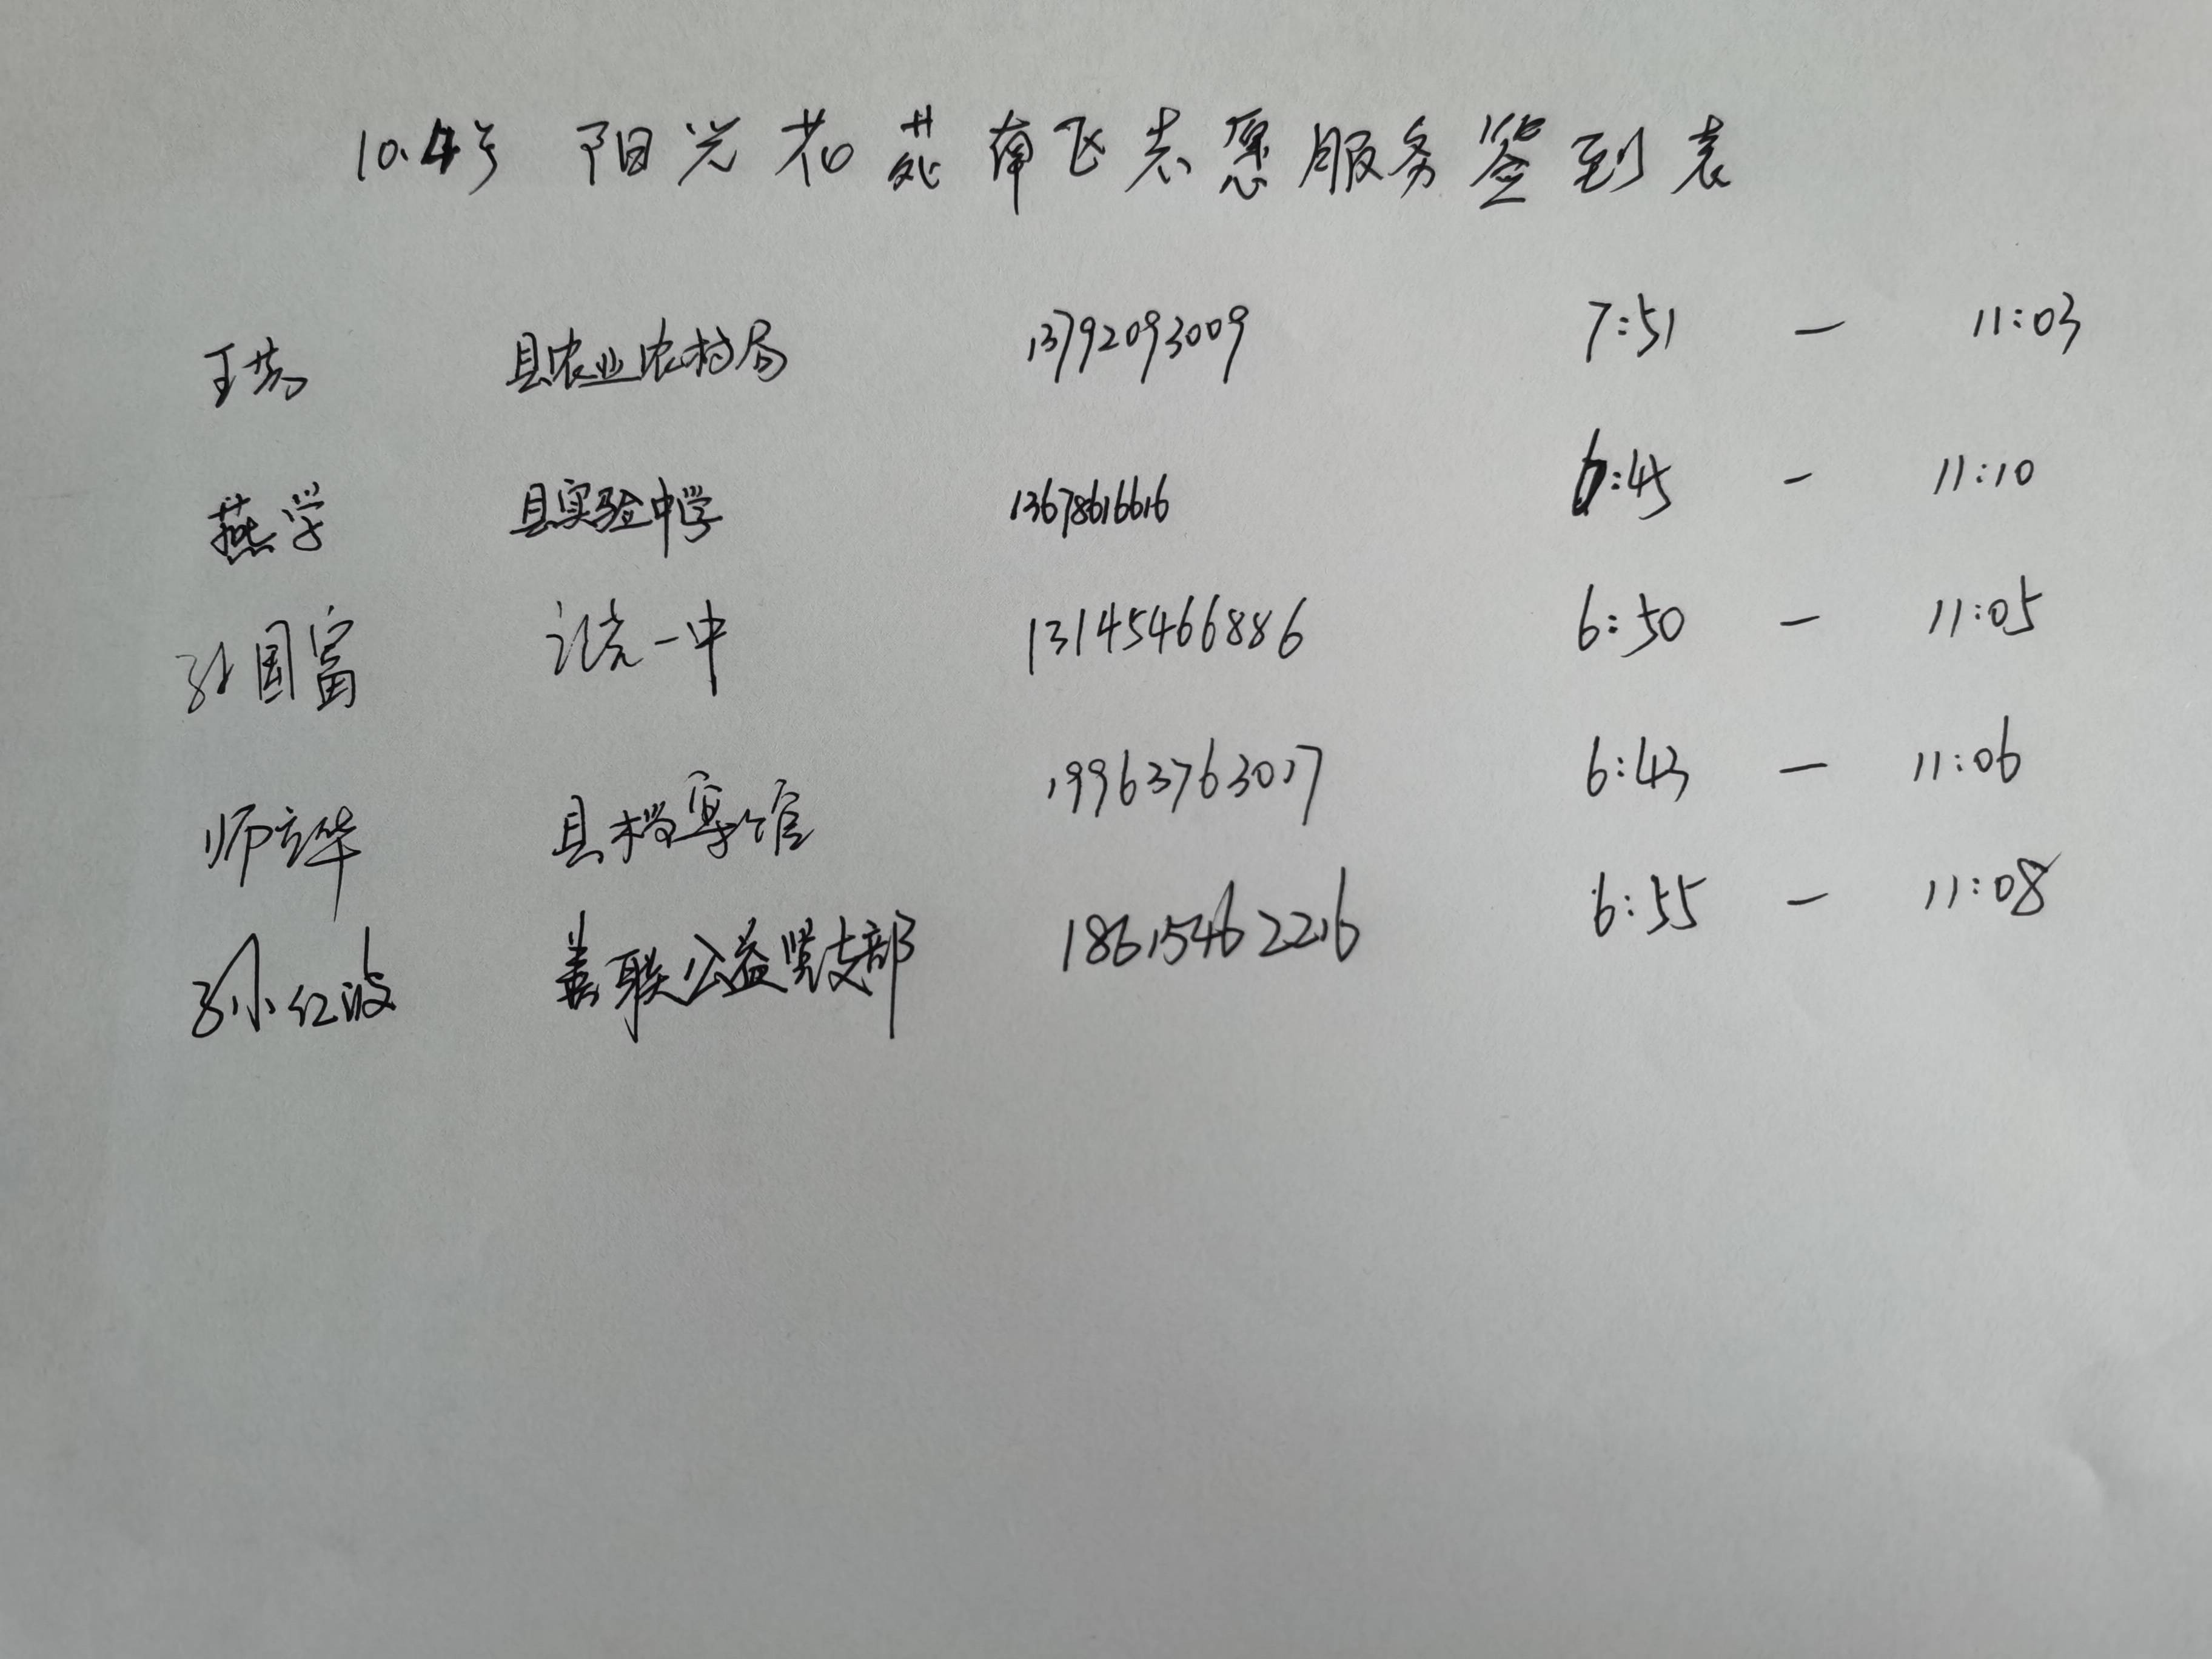 10.4号 阳光花苑南飞志愿服务签到表
王芳 县农业农村局 13792093009 7:51 — 11:03
燕学 县实验中学 13678616616 6:45 — 11:10
孙国富 一中 13145466886 6:50 — 11:05
师立华 县档案馆 19963763017 6:43 — 11:06
孙红波 善联公益党支部 18615462216 6:55 — 11:08